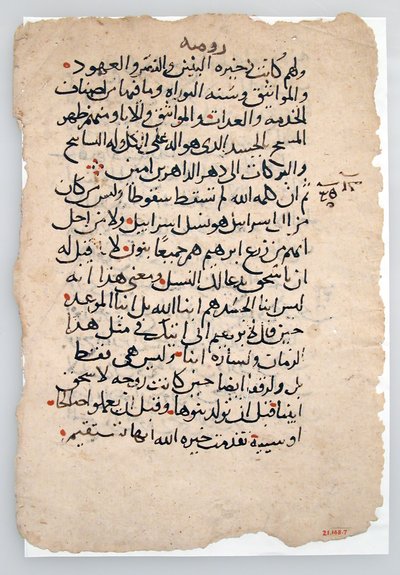 رومىه
ولهم كانت ذخيره البنين والنمر والعهود
والمواثيق وسنه التوراه وما فيها من اصناف
الخدمه والعدات والمواثيق والابا ومنهم ظهر
المسيح بالجسد الذى هو اله على الكل وله التسابيح
والبركات الى دهر الداهرين امين
ثم ان كلمه الله لم تسقط سقوطا وليس كل من كان
من ال اسرائيل هو نسل اسرائيل ولا من اجل
انهم من زرع ابرهيم هم جميعا بنون لا قيل له
ان اسحق يدعا لك النسل ومعنى هذا انه
ليس ابنا الجسد هم ابنا الله بل ابنا الموعد
حين قال انى اتيك فى مثل هذا
الزمان ولساره ابنا وليس هى فقط
بل ورفقا ايضا حين كانت زوجه لاسحق
ابينا قبل ان تولد بنوها وقبل ان يعملوا صالحا
او سيئة تقدمت خيره الله انها تستقيم
21.148.7